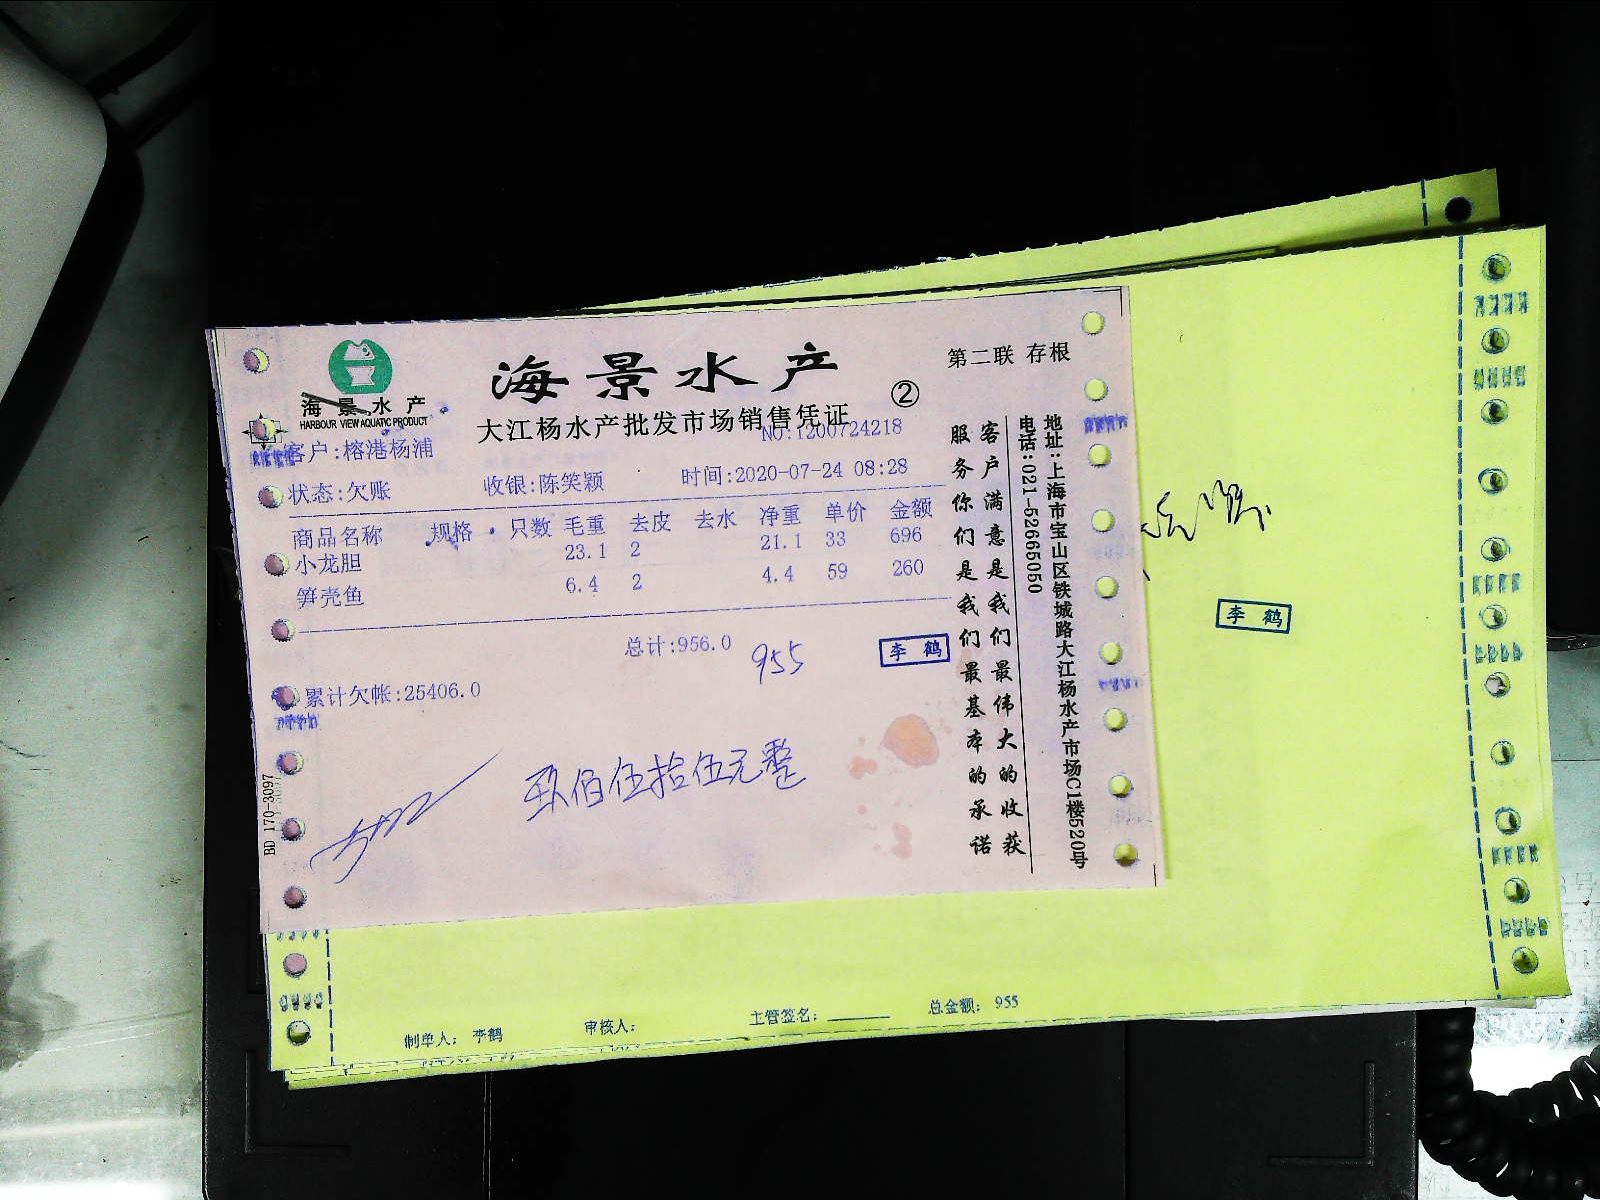 海景水产
HARBOUR VIEW AQUATIC PRODUCT
海景水产
第二联 存根
②
大江杨水产批发市场销售凭证
NO:1200724218
客户:榕港杨浦
状态:欠账 收银:陈笑颖 时间:2020-07-24 08:28
商品名称 规格 只数 毛重 去皮 去水 净重 单价 金额
小龙胆 23.1 2 21.1 33 696
笋壳鱼 6.4 2 4.4 59 260
总计:956.0
955
李鹤
累计欠帐:25406.0
玖佰伍拾伍元整
BD 170-3097
客户满意是我们最伟大的收获
服务你们是我们最基本的承诺
地址:上海市宝山区铁城路大江杨水产市场C1楼520号
电话:021-52665050
李鹤
制单人: 李鹤 审核人: 主管签名: 总金额: 955